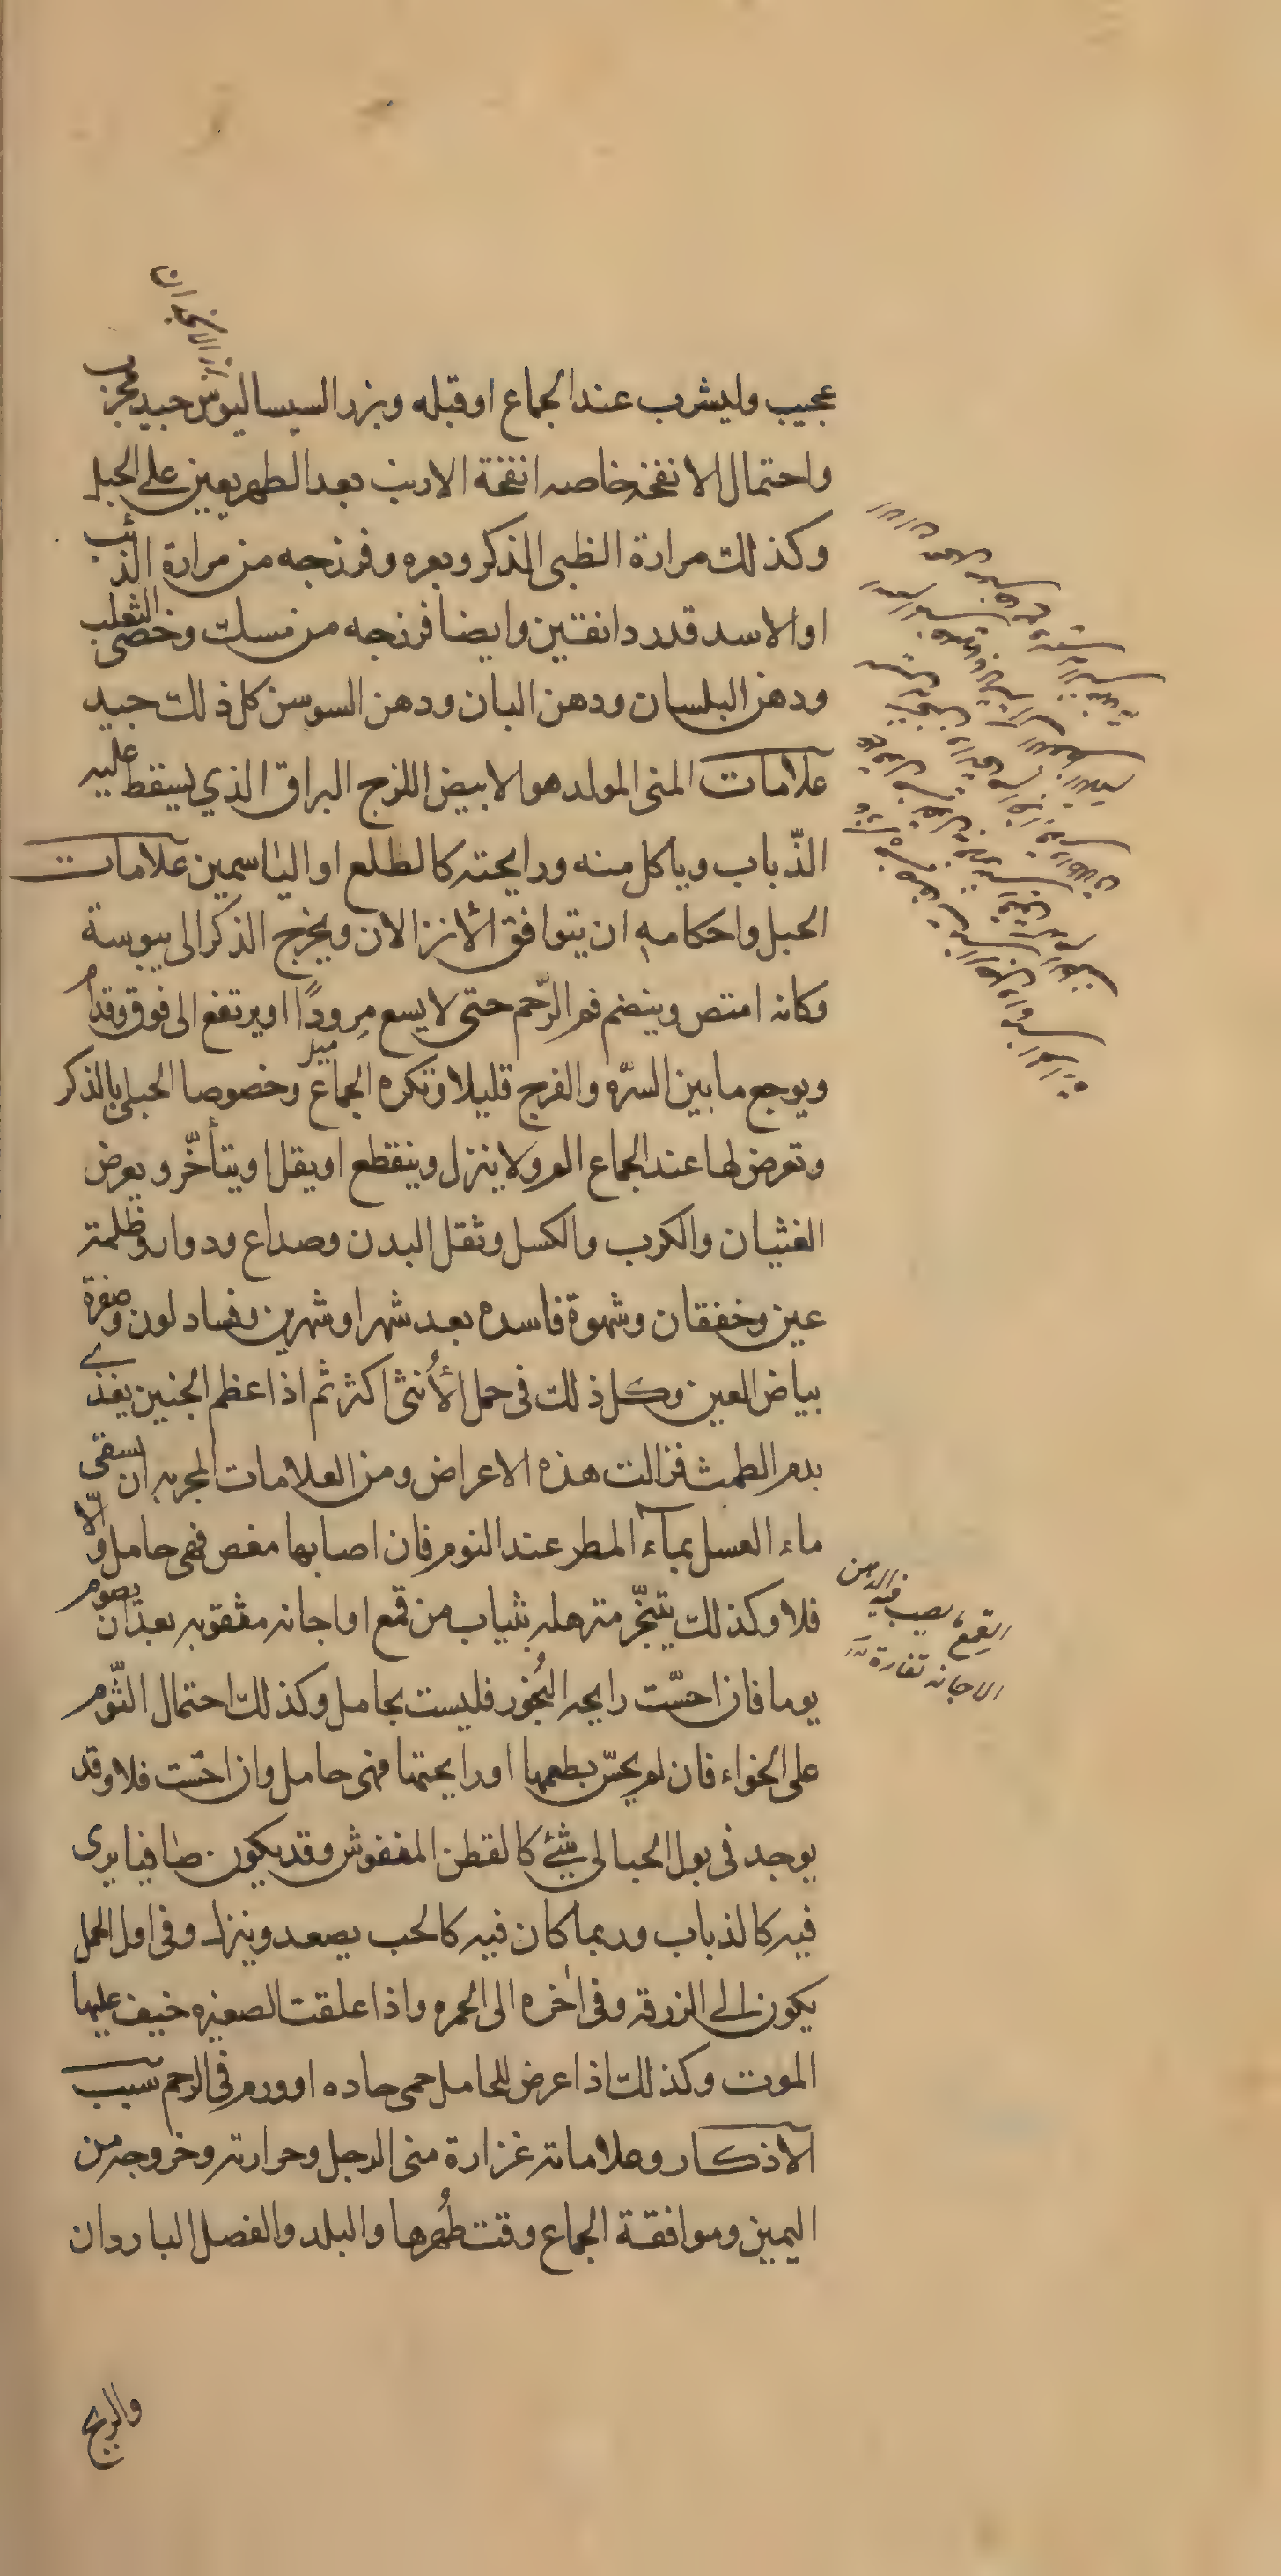 عجيب وليشرب عند الجماع او قبله وبزر السيساليوس جيد مجرب
واحتمال الانفخه خاصه انفخة الارنب بعد الطهر يعين على الحبل
وكذلك مرارة الظبى الذكر وبعره وفرزجه من مرارة الذئب
او الاسد قدر دانقين وايضا فرزجه من مسك وخصى الثعلب
ودهن البلسان ودهن البان ودهن السوسن كل ذلك جيد
علامات المنى المولد هو الابيض اللزج البراق الذي يسقط عليه
الذّباب وياكل منه ورايحته كالطلع او الياسمين علامات
الحبل واحكامه ان يتوافق الأنزالان ويخرج الذكر الى يبوسة
وكانه امتص وينضم فم الرّحم حتى لا يسع مرودًا او يرتفع الى فوق وقدام
ميل
ويوجع ما بين السرّه والفرج قليلا وتكره الجماع وخصوصا الحبلى بالذكر
وتعرض لها عند الجماع الم ولا ينزل وينقطع او يقل او يتأخّر ويعرض
الغثيان والكرب والكسل وثقل البدن وصداع ودوار وظلمة
عين وخفقان وشهوة فاسده بعد شهر او شهرين وفساد لون وصفرة
بياض العين وكل ذلك فى حمل الأُنثى اكثر ثم اذا عظم الجنين يغذي
بدم الطمث فزالت هذه الاعراض ومن العلامات المجربه ان يسقى
ماء العسل بمآء المطر عند النوم فان اصابها مغص فهى حامل والّا
فلا وكذلك يتبخّر متزمله بثياب من قمع او اجانه مثقوبه بعد ان يصوم
يوما فان احسّت رايحه البُخور فليست بحامل وكذلك احتمال الثّوم
على الخواء فان لم يحسّ بطعمها او رايحتها فهى حامل وان احسّت فلا وقد
يوجد فى بول الحبالى شئ كالقطن المنفوش وقد يكون صافيا يرى
فيه كالذباب وربما كان فيه كالحب يصعد وينزل وفى اول الحمل
يكون الى الزرقه وفى اخره الى الحمره واذا علقت الصغيره خيف عليها
الموت وكذلك اذا عرض للحامل حمى حاده او ورم فى الرحم سبب
الاذكار وعلاماته غزارة منى الرجل وحرارته وخروجه من
اليمين وموافقة الجماع وقت طُهرها والبلد والفصل الباردان
والريح
بزر الانجدان
القمع يصب فيه الدهن
الاجانه تغارة